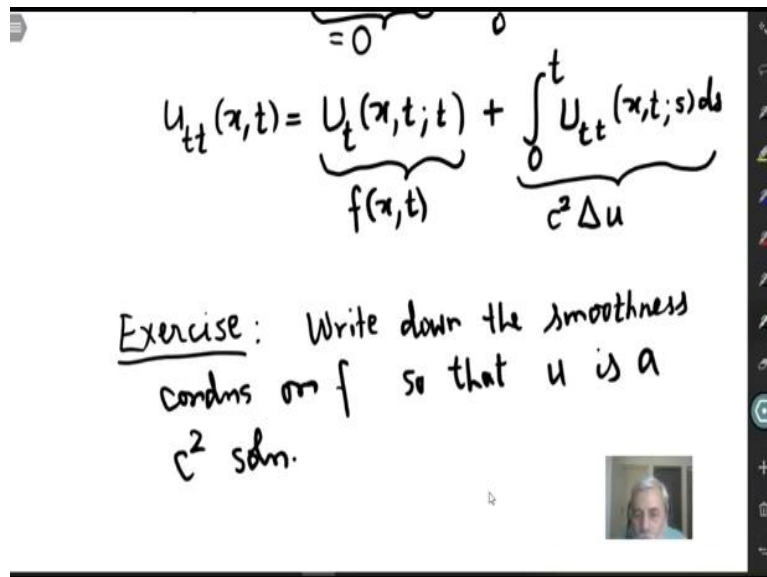 = 0 0
u_tt (x,t) = U_t (x,t;t) + ∫_0^t U_tt (x,t;s) ds
f(x,t) c² Δu
Exercise: Write down the smoothness
condns on f so that u is a
C² soln.